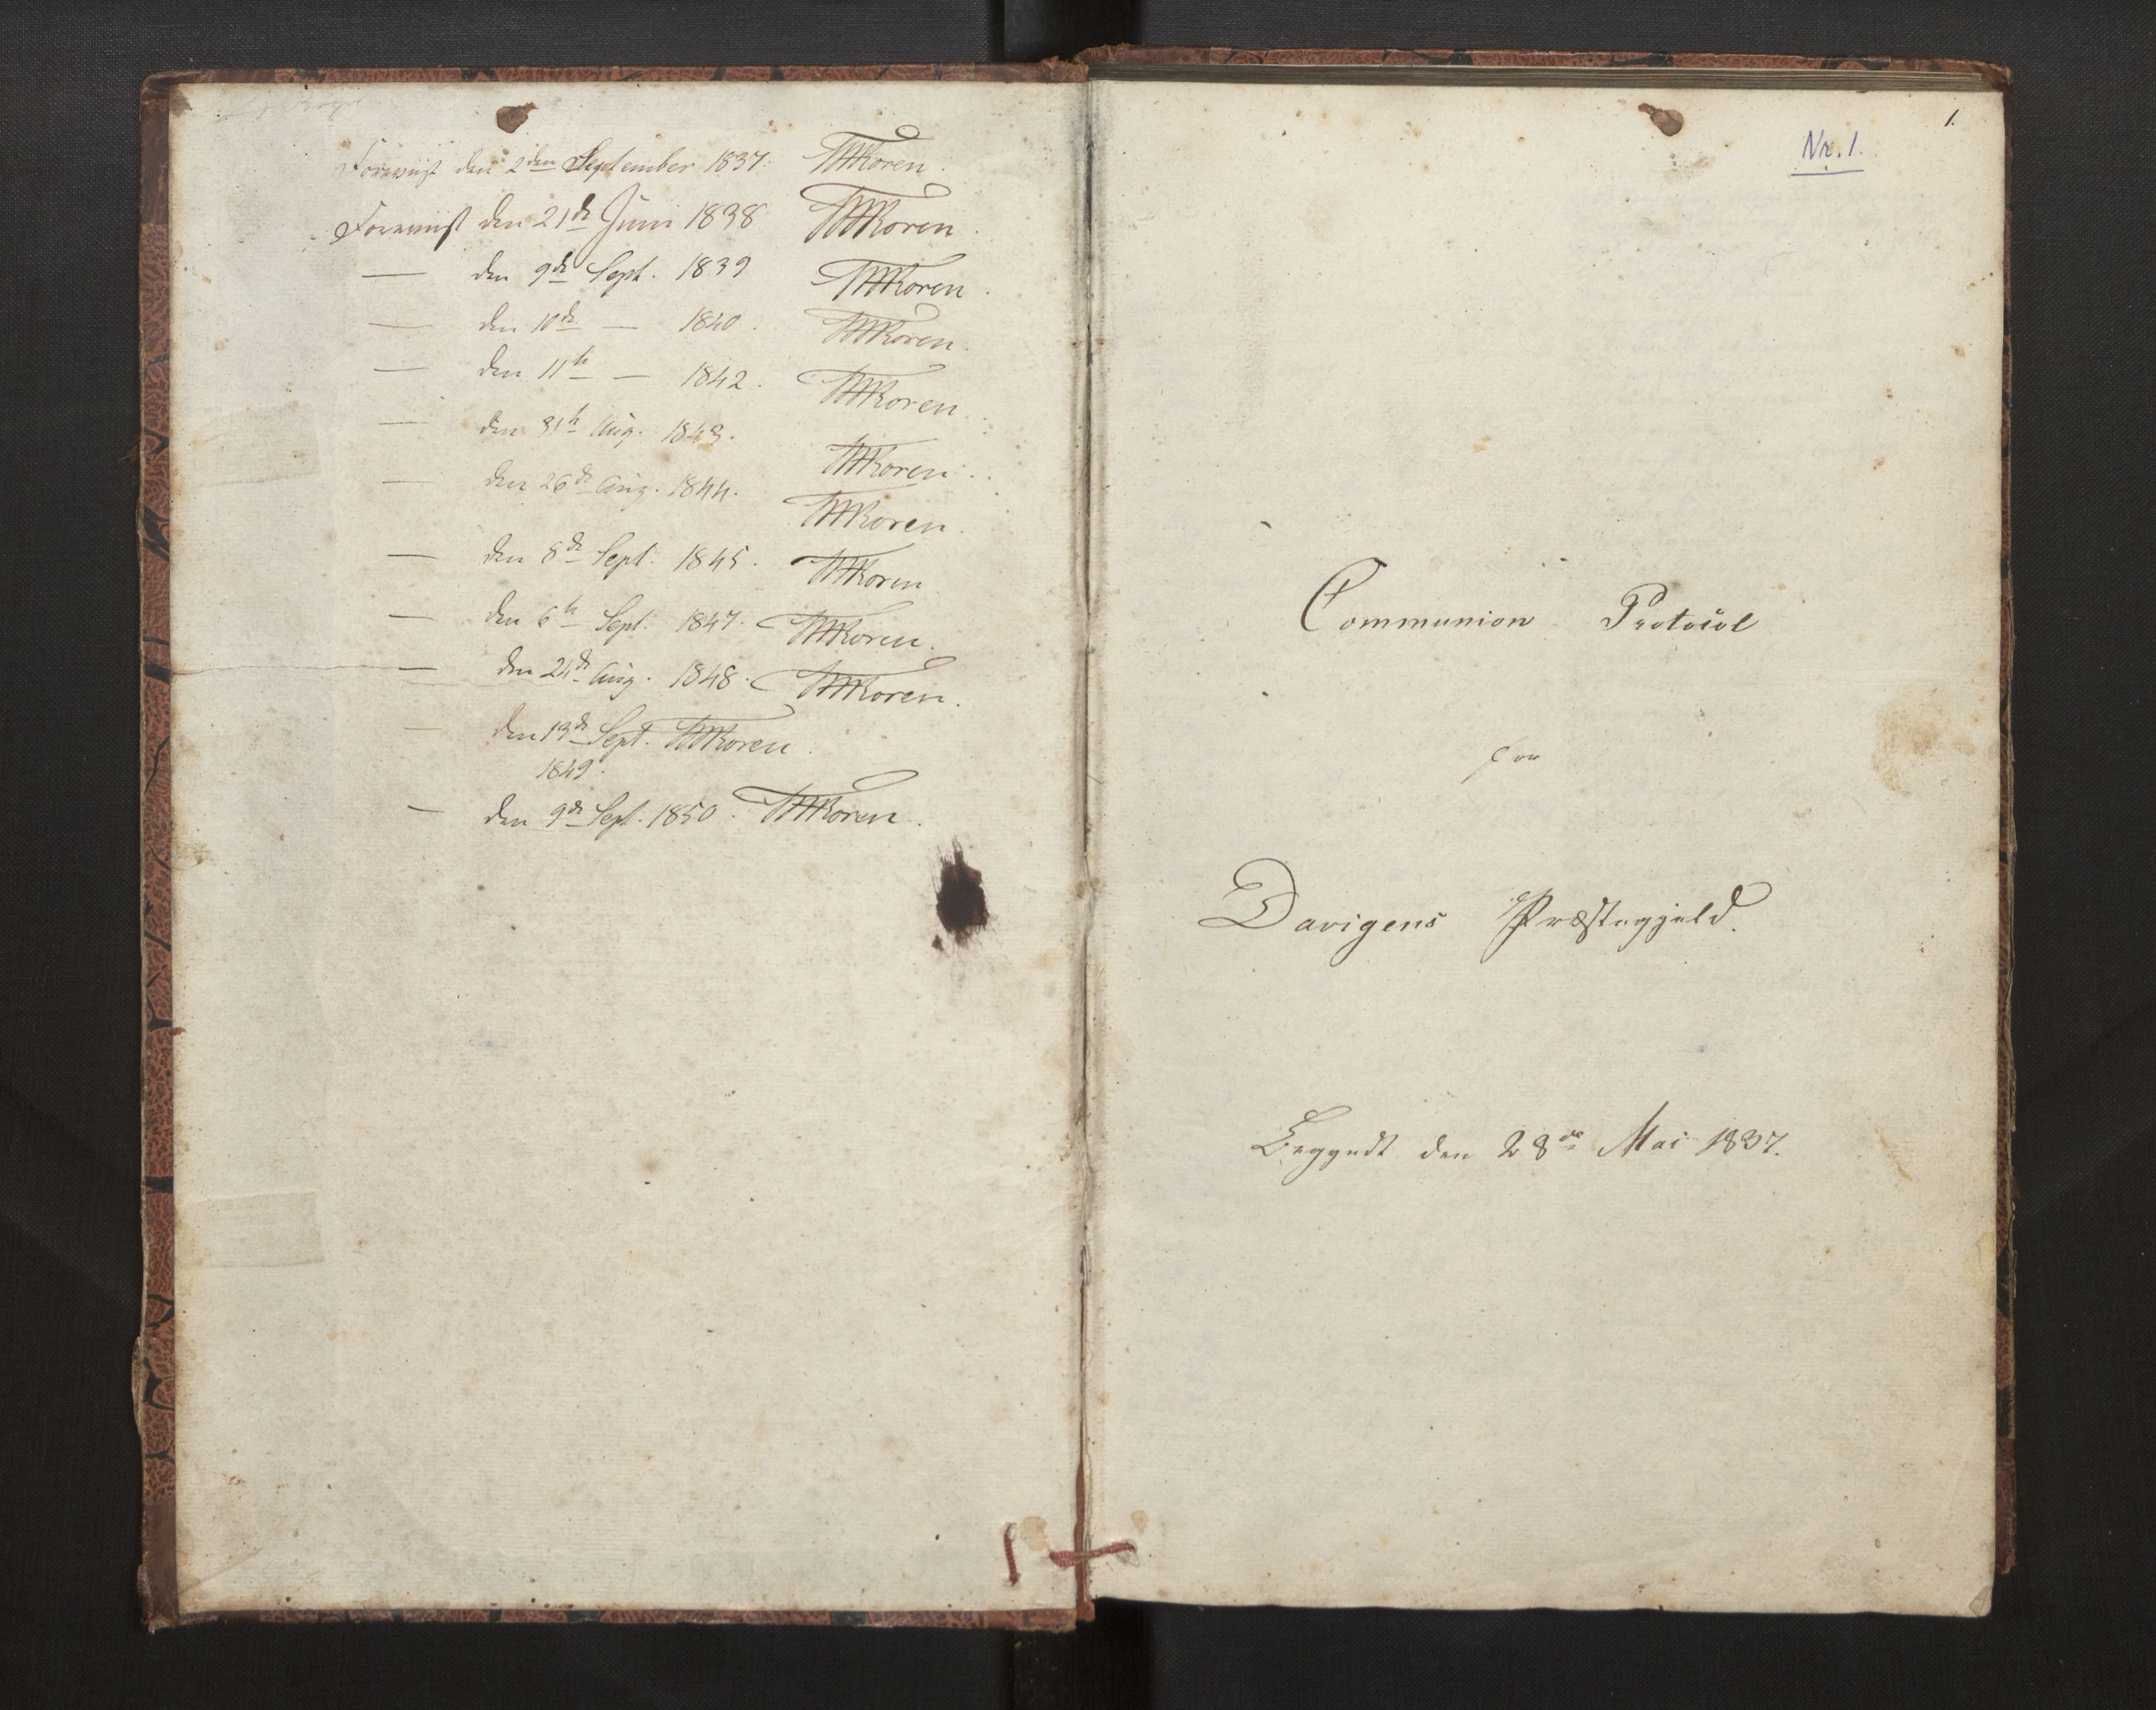 Foreviist den 2den September 1837. WFKoren.
Foreviist den 21de Juni 1838 WFKoren.
— den 9de Sept. 1839 WFKoren.
— den 10de — 1840. WFKoren.
— den 11te — 1842. WFKoren.
— den 31te Aug. 1843. WFKoren.
— den 26de Aug. 1844. WFKoren.
— den 8de Sept. 1845. WFKoren
— den 6te Sept. 1847. WFKoren.
— den 24de Aug. 1848. WFKoren.
— den 13de Sept. WFKoren.
1849.
— den 9de Sept. 1850. WFKoren.
1.
Nr. 1.
Communion Protocol
for
Davigens Præstegjeld.
Begyndt den 28de Mai 1837.